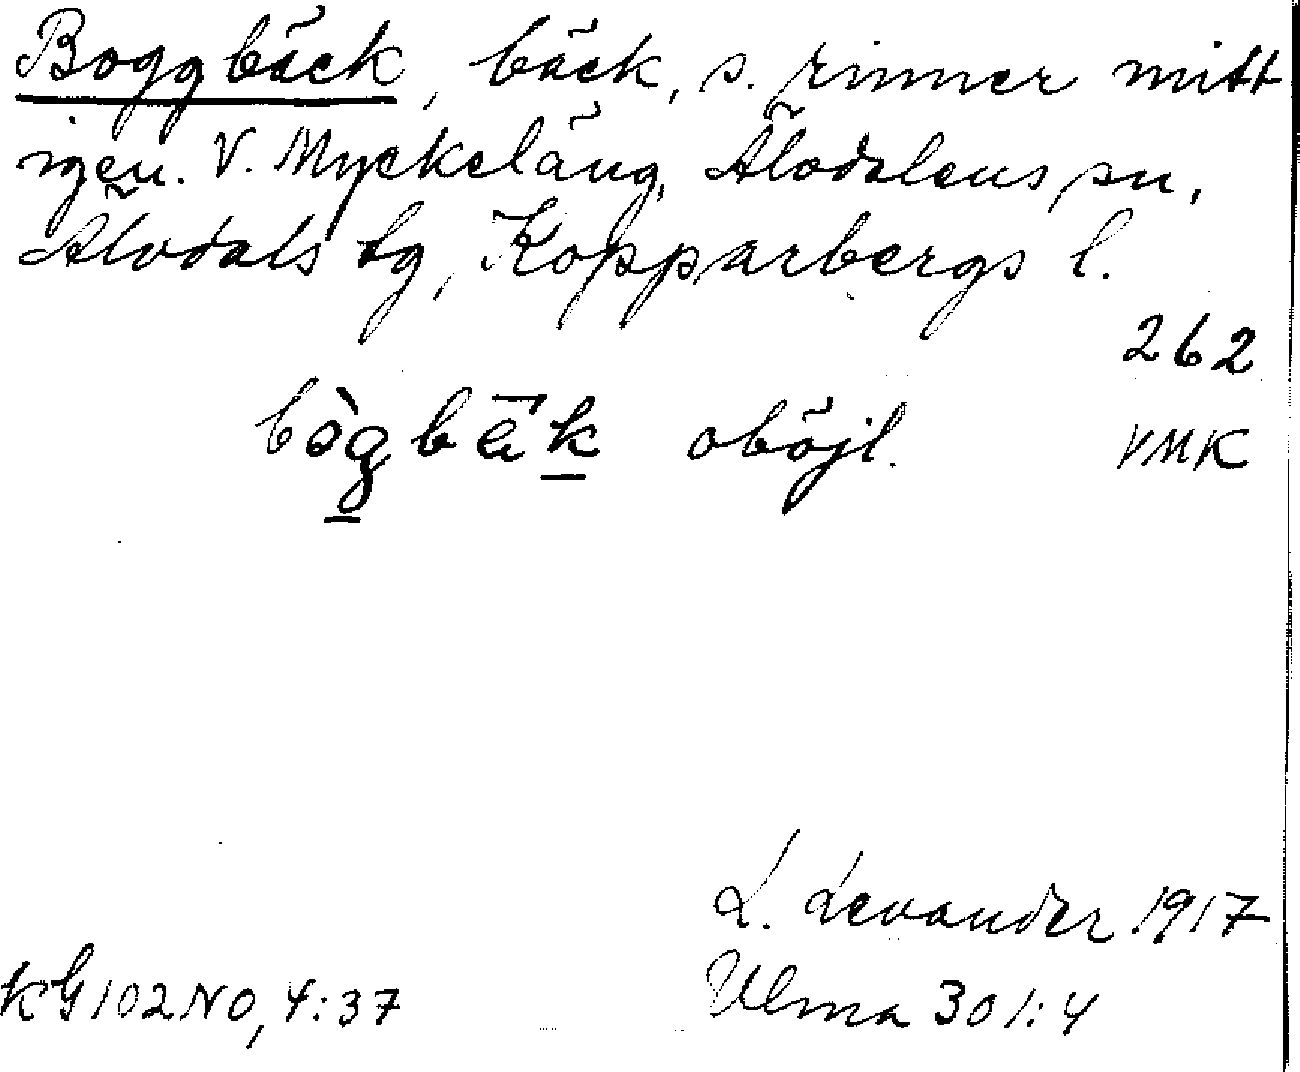 Boggbäck, bäck, s. rinner mitt
igen. V. Myckeläng, Älvdalens sn,
Älvdals tg, Kopparbergs l.
262
oböjl.
VMK
L. Levander 1917
KG102NO, 4:37
Ulma 301:4